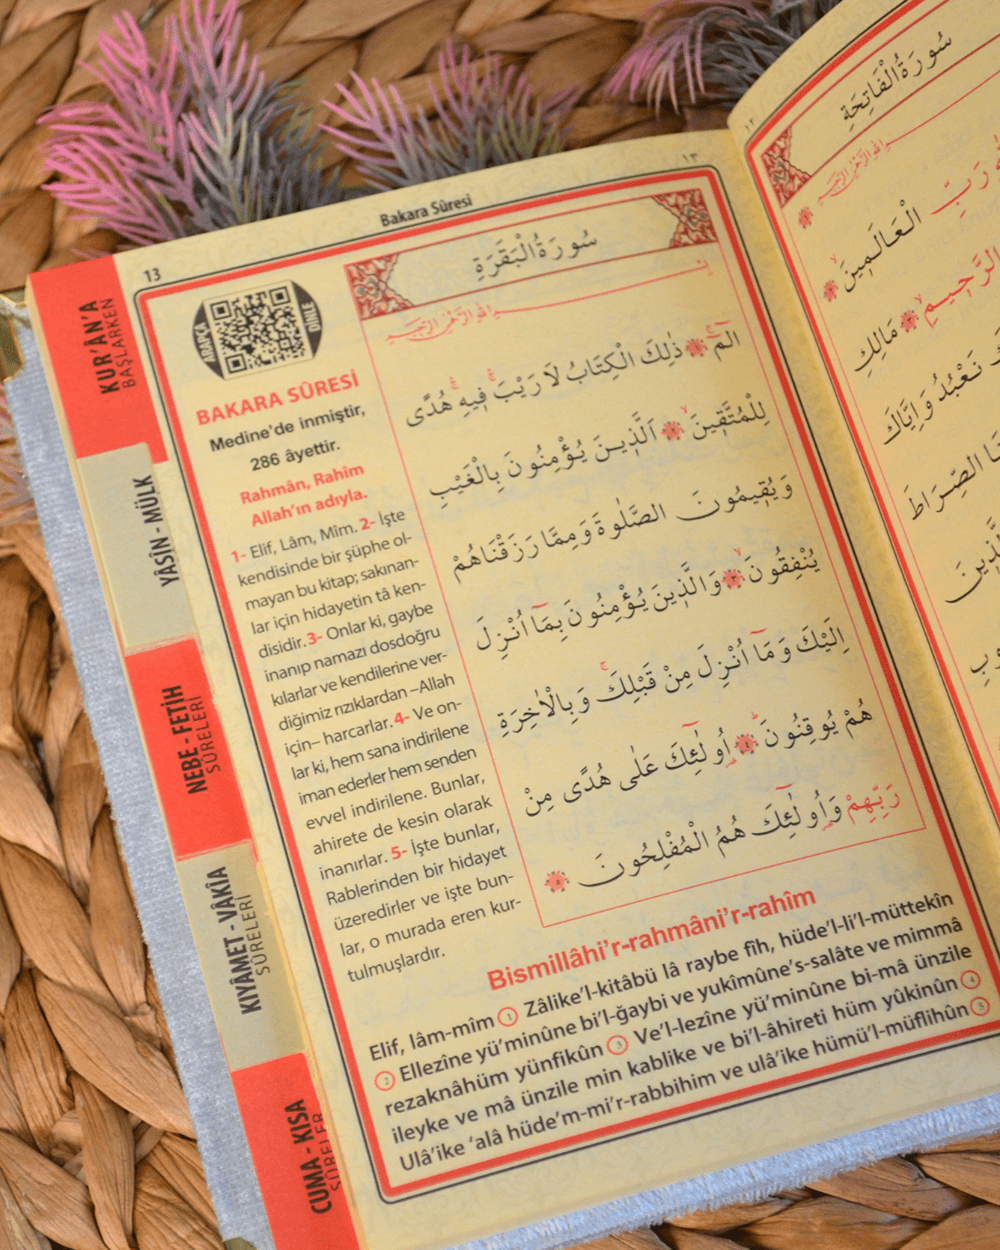 KUR'ÂN'A
BAŞLARKEN
YÂSÎN - MÜLK
NEBE - FETİH
SÛRELERİ
KIYÂMET - VÂKIA
SÛRELERİ
CUMA - KISA
SÛRELER
13
Bakara Sûresi
١٣
ARAPÇA
DİNLE
BAKARA SÛRESİ
Medine'de inmiştir,
286 âyettir.
Rahmân, Rahîm
Allah'ın adıyla.
1- Elif, Lâm, Mîm. 2- İşte
kendisinde bir şüphe ol-
mayan bu kitap; sakınan-
lar için hidayetin tâ ken-
disidir. 3- Onlar ki, gaybe
inanıp namazı dosdoğru
kılarlar ve kendilerine ver-
diğimiz rızıklardan –Allah
için– harcarlar. 4- Ve on-
lar ki, hem sana indirilene
iman ederler hem senden
evvel indirilene. Bunlar,
ahirete de kesin olarak
inanırlar. 5- İşte bunlar,
Rablerinden bir hidayet
üzeredirler ve işte bun-
lar, o murada eren kur-
tulmuşlardır.
سُورَةُ الْبَقَرَةِ
بِسْمِ اللّٰهِ الرَّحْمٰنِ الرَّحِيمِ
الٓمٓ ﴿١﴾ ذٰلِكَ الْكِتَابُ لَا رَيْبَ فِيهِ هُدًى
لِلْمُتَّقِينَ ﴿٢﴾ اَلَّذِينَ يُؤْمِنُونَ بِالْغَيْبِ
وَيُقِيمُونَ الصَّلٰوةَ وَمِمَّا رَزَقْنَاهُمْ
يُنْفِقُونَ ﴿٣﴾ وَالَّذِينَ يُؤْمِنُونَ بِمَٓا اُنْزِلَ
اِلَيْكَ وَمَٓا اُنْزِلَ مِنْ قَبْلِكَ وَبِالْاٰخِرَةِ
هُمْ يُوقِنُونَ ﴿٤﴾ اُو۬لٰٓئِكَ عَلٰى هُدًى مِنْ
رَبِّهِمْ وَاُو۬لٰٓئِكَ هُمُ الْمُفْلِحُونَ ﴿٥﴾
Bismillâhi'r-rahmâni'r-rahîm
Elif, lâm-mîm ① Zâlike'l-kitâbü lâ raybe fîh, hüde'l-li'l-müttekîn
② Ellezîne yü'minûne bi'l-ğaybi ve yukîmûne's-salâte ve mimmâ
rezaknâhüm yünfikûn ③ Ve'l-lezîne yü'minûne bi-mâ ünzile
ileyke ve mâ ünzile min kablike ve bi'l-âhireti hüm yûkinûn ④
Ulâ'ike 'alâ hüde'm-mi'r-rabbihim ve ulâ'ike hümü'l-müflihûn ⑤
١٢
سُورَةُ الْفَاتِحَةِ
بِسْمِ اللّٰهِ الرَّحْمٰنِ الرَّحِيمِ
رَبِّ الْعَالَمِينَ
الرَّحِيمِ مَالِكِ
نَعْبُدُ وَاِيَّاكَ
الصِّرَاطَ